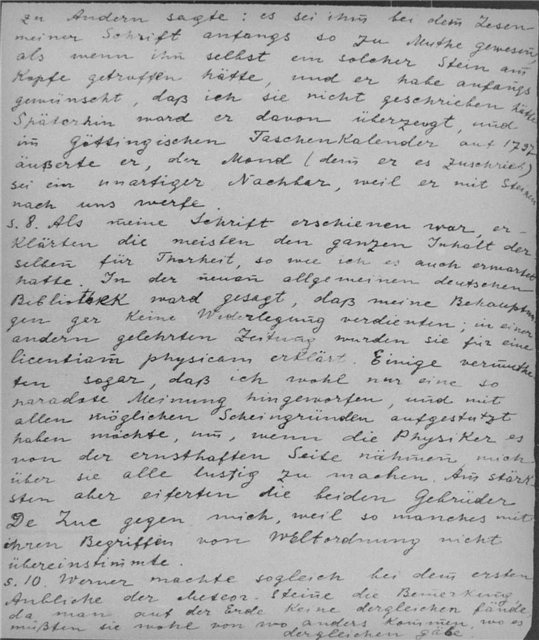 zu Andern sagte: es sei ihm bei dem Lesen
meiner Schrift anfangs so zu Muthe gewesen,
als wenn ihn selbst ein solcher Stein am
Kopfe getroffen hätte, und er habe anfangs
gewünscht, daß ich sie nicht geschrieben hätte
Späterhin ward er davon überzeugt, und
im göttingischen Taschenkalender auf 1797
äußerte er, der Mond (dem er es zuschrieb)
sei ein unartiger Nachbar, weil er mit Steinen
nach uns werfe.
S. 8. Als meine Schrift erschienen war, er-
klärten die meisten den ganzen Inhalt der
selben für Thorheit, so wie ich es auch erwartet
hatte. In der neuen allgemeinen deutschen
Bibliothek ward gesagt, daß meine Behauptun
gen gar keine Widerlegung verdienten; in einer
andern gelehrten Zeitung wurden sie für eine
licentiam physicam erklärt. Einige vermuthe
ten sogar, daß ich wohl nur eine so
paradoxe Meinung hingeworfen, und mit
allen möglichen Scheingründen aufgestutzt
haben möchte, um, wenn die Physiker es
von der ernsthaften Seite nähmen mich
über sie alle lustig zu machen. Am stärk
sten aber eiferten die beiden Gebrüder
De Luc gegen mich, weil so manches mit
ihren Begriffen von Weltordnung nicht
übereinstimmte.
S. 10. Werner machte sogleich bei dem ersten
Anblicke der Meteor-Steine die Bemerkung,
da man auf der Erde keine dergleichen fände
müßten sie wohl von wo anders kommen, wo es
dergleichen gäbe